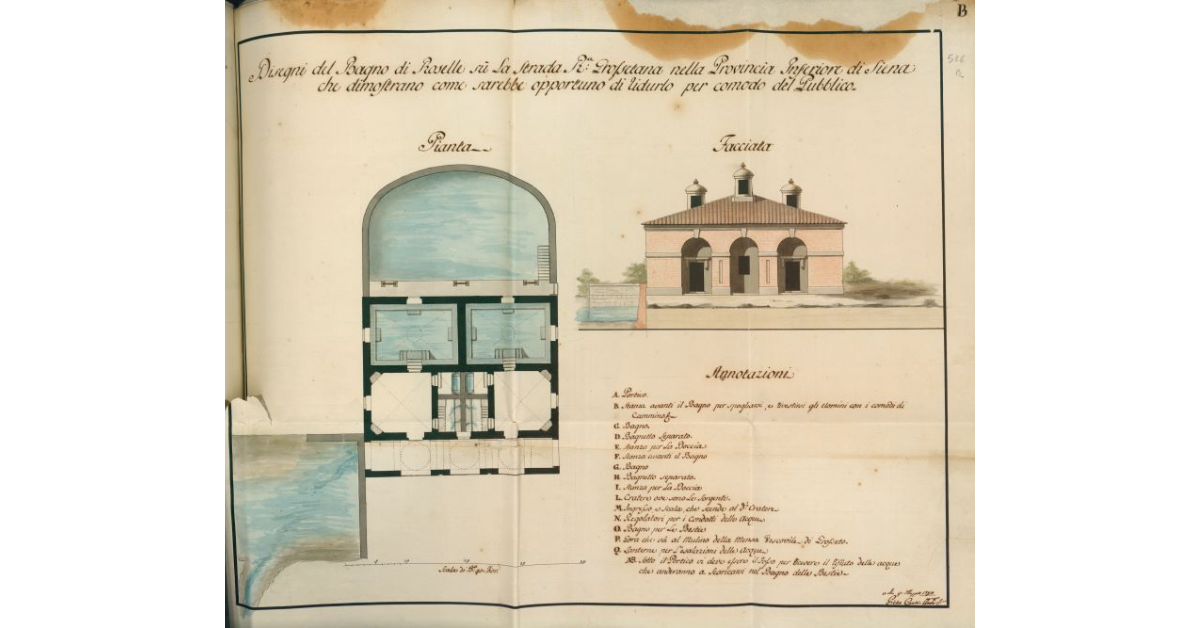 B
Disegni del Bagno di Roselle sù La Strada R: Grossetana nella Provincia Inferiore di Siena
che dimostrano come sarebbe opportuno di ridurlo per comodo del Pubblico.
Pianta
Facciata
Annotazioni
A. Portico.
B. Stanza avanti il Bagno per spogliarsi, e rivestirsi gli Uomini con i comodi di
Cammino
C. Bagno.
D. Bagnetto separato.
E. Stanza per La Doccia
F. Stanza avanti il Bagno
G. Bagno
H. Bagnetto separato.
I. Stanza per La Doccia
L. Cratere ove sono Le Sorgenti.
M. Ingresso e Scala, che scende al Cratere
N. Regolatori per i condotti delle acque
O. Bagno per Le Bestie
P. Gora che và al Mulino della Mensa Vescovile di Grosseto.
Q. Lanterne per L'esalazioni delle Acque
NB. Sotto il Portico vi deve essere il fosso per ricevere il rifiuto delle acque
che anderanno a scaricarsi nel Bagno delle Bestie
Scala di